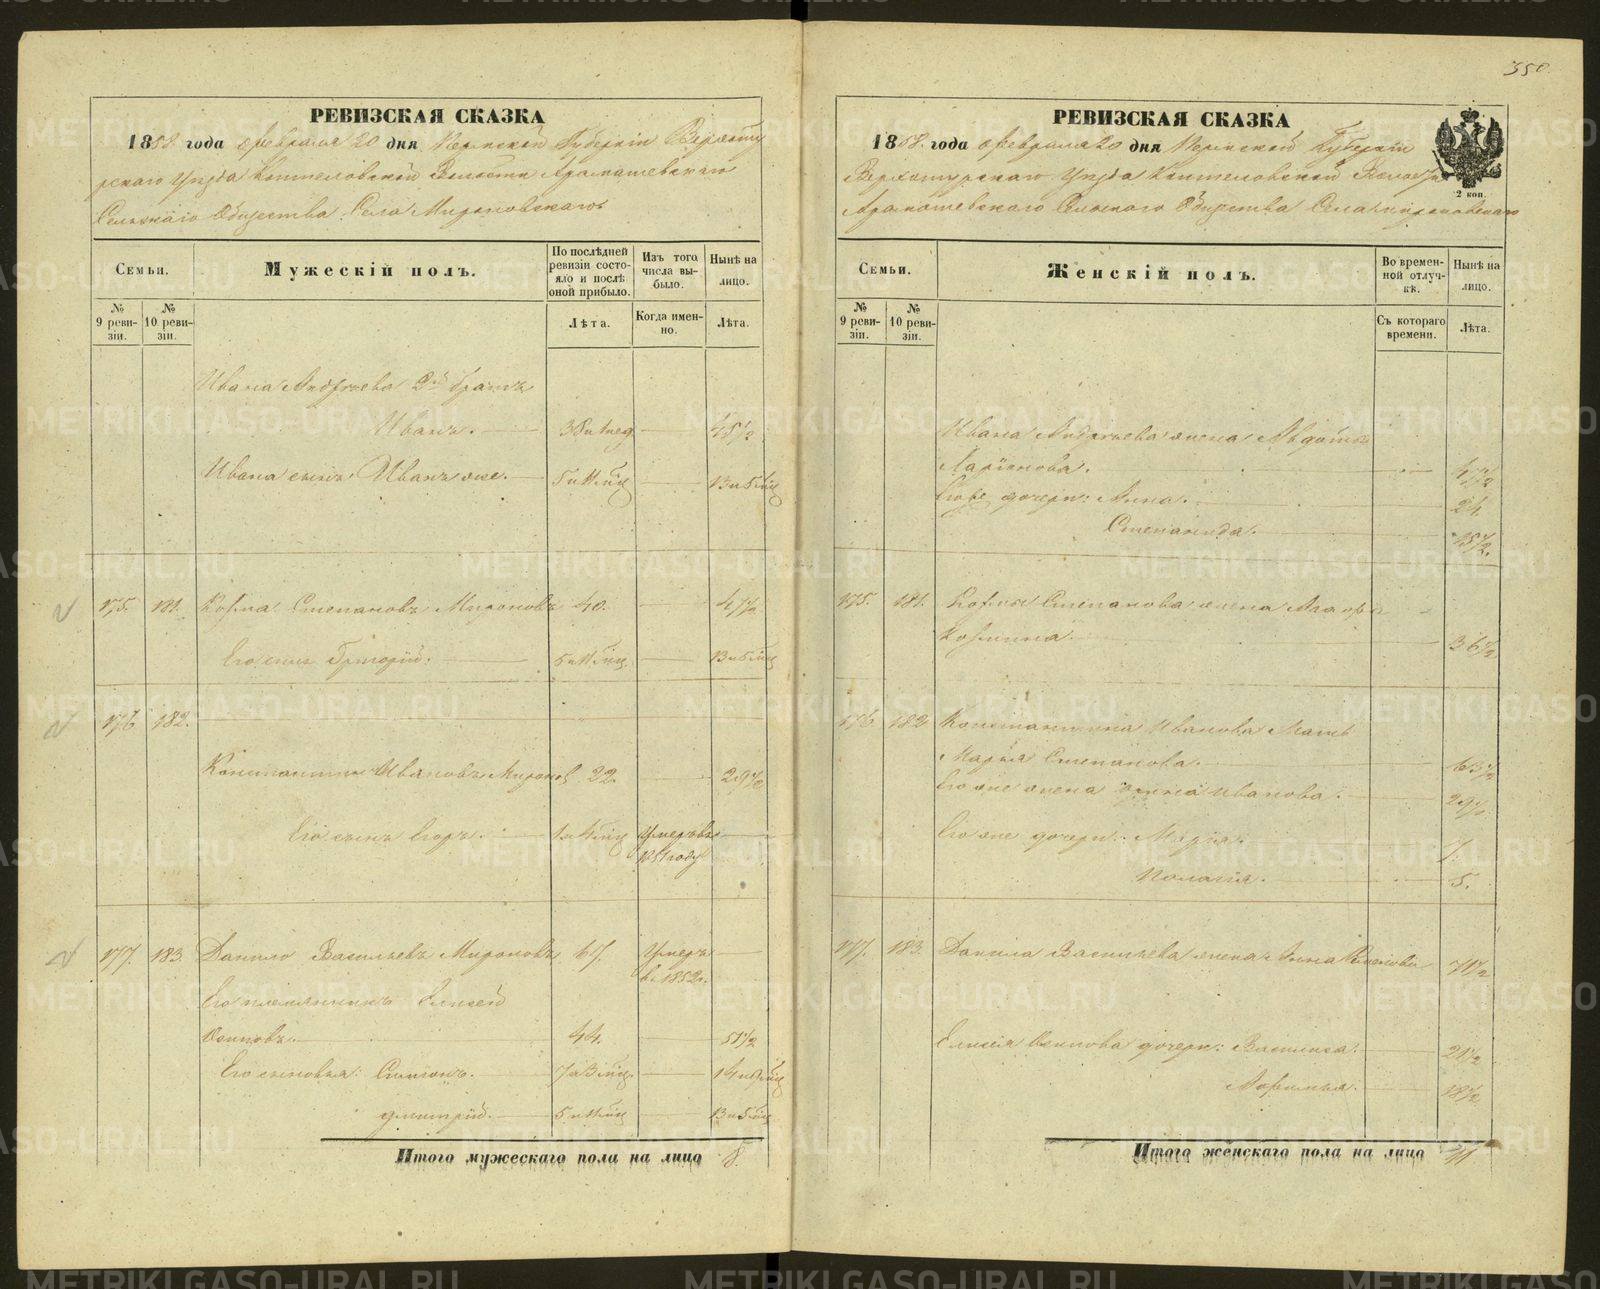 350
РЕВИЗСКАЯ СКАЗКА
1858 года февраля 20 дня Пермской Губерніи Верхоту
рскаго Уѣзда Коптеловской Волости Арамашевскаго
Сельскаго Общества Села Мироновскаго
Семьи.
Мужескій полъ.
По послѣдней ревизіи состо-
яло и послѣ оной прибыло.
Изъ того числа вы-
было.
Нынѣ на лицо.
№ 9 реви-
зіи.
№ 10 реви-
зіи.
Лѣта.
Когда имен-
но.
Лѣта.
Ивана Андреева 2й братъ
Иванъ. 38 45½
Ивана сынъ Иванъ же. 5 и 11 мѣц 13 и 5 мѣц
175. 181. Козма Степановъ Мироновъ 40. 47½
Его сынъ Григорій. 5 и 11 мѣц 13 и 5 мѣц
176 182.
Константинъ Ивановъ Миронов 22. 29½
Его сынъ Егоръ. 1 и 4 мѣц Умеръ въ
1851 году
177. 183. Данило Васильевъ Мироновъ 67. Умеръ
в. 1852 г.
Его племянникъ Елисей
Осиповъ. 44. 51½
Его сыновья: Симіонъ. 7 и 3 мѣц 14 и 9 мѣц
Дмитрій. 5 и 11 мѣц 13 и 5 мѣц
Итого мужескаго пола на лицо 8.
РЕВИЗСКАЯ СКАЗКА
1858 года февраля 20 дня Пермской Губерніи
Верхотурскаго Уѣзда Коптеловской Волости
Арамашевскаго Сельскаго Общества Села Мироновскаго
2 коп.
Семьи.
Женскій полъ.
Во времен-
ной отлуч-
кѣ.
Нынѣ на лицо.
№ 9 реви-
зіи.
№ 10 реви-
зіи.
Съ котораго времени.
Лѣта.
Ивана Андреева жена Авдотья
Ларіонова. 47½
дочери: Анна. 24
Степанида. 15½.
175. 181. Козмы Степанова жена
Козмина. 36½
176. 182 Константина Иванова Мать
Марья Степанова. 63½
Его же жена Иванова. 29½
Его же дочери: Марія. 7.
Палагія. 5.
177. 183. Данила Васильева жена Анна 71½
Елисея Осипова дочери: Василиса. 21½
18½
Итого женскаго пола на лицо 11
METRIKI.GASO-URAL.RU